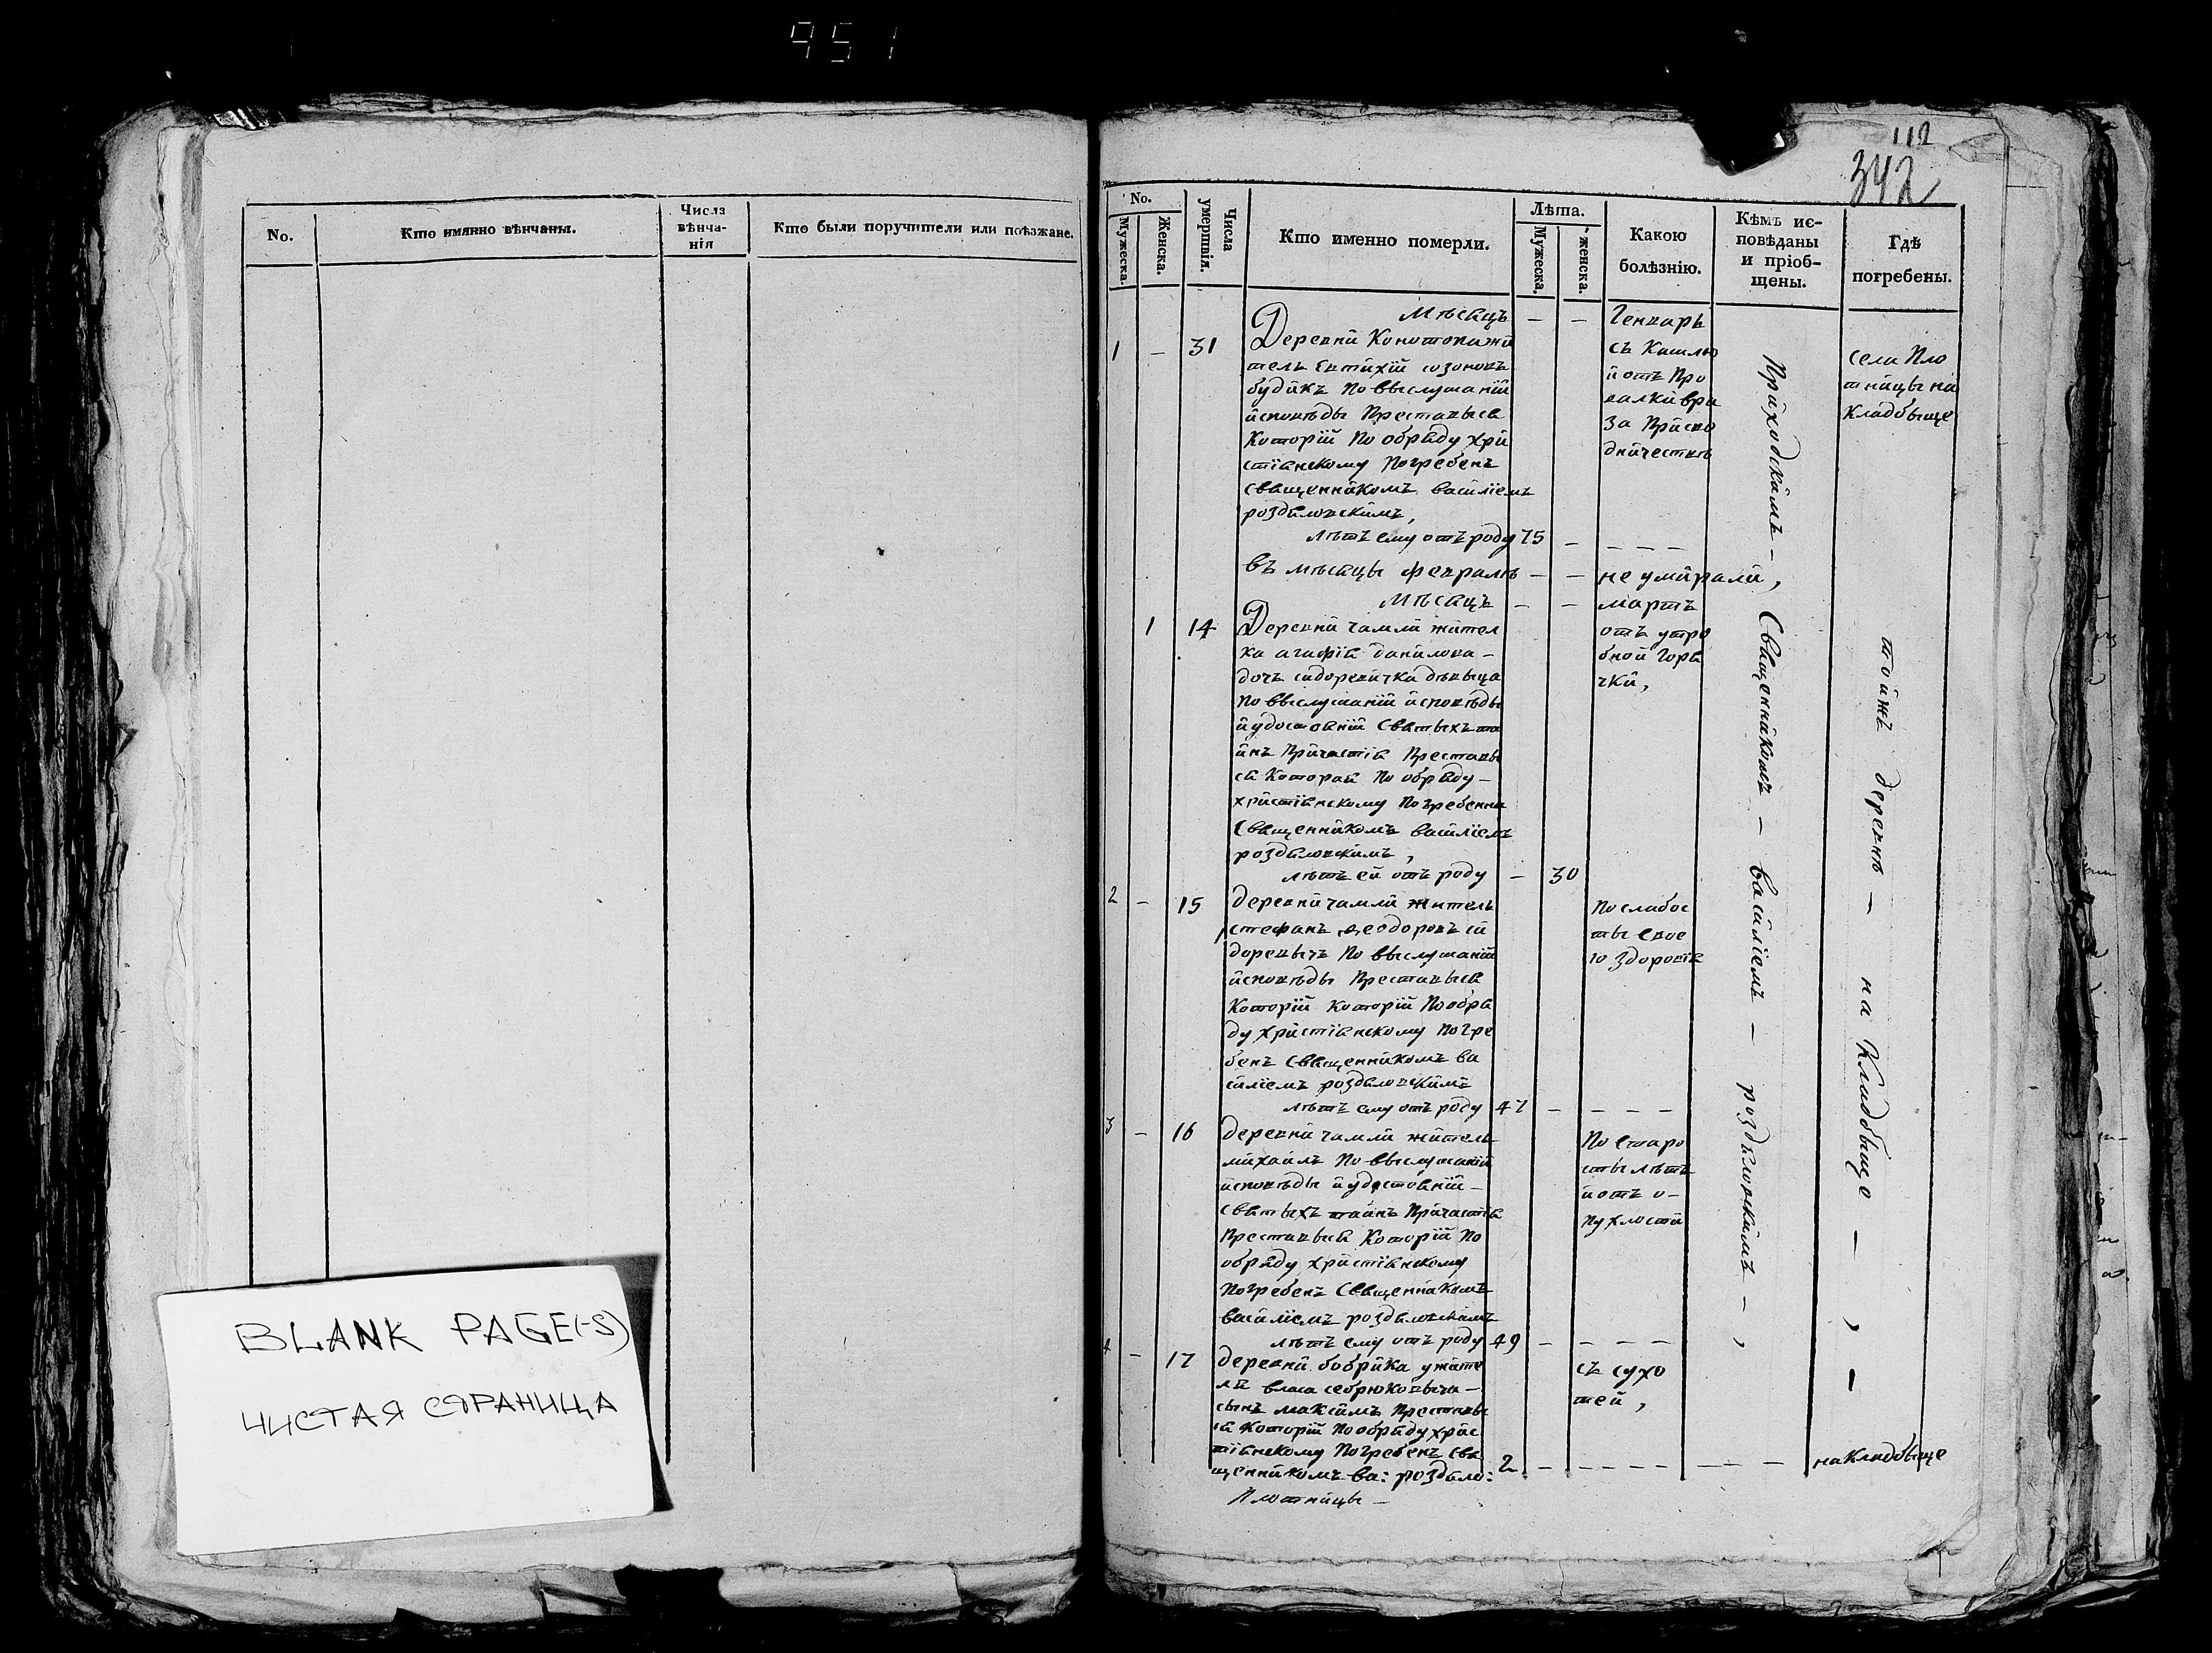 951
No.
Кто имянно вѣнчаны.
Числа вѣнча-
нія
Кто были поручители или поѣзжане.
BLANK PAGE(-S)
ЧИСТАЯ СТРАНИЦА
112
342
No.
Мужеска.
Женска.
Числа умертвія.
Кто именно померли.
Лѣта.
Мужеска.
женска.
Какою
болѣзнію.
Кѣмъ ис-
повѣданы
и пріоб-
щены.
Гдѣ
погребены.
Мѣсяцъ — — Генварь
1 — 31
Деревни Конотопа жи
тель Евтихій созоновъ
будикъ по выслушаніи
исповѣды преставыся
которій по обряду хри
стіянскому погребенъ
священникомъ василіемъ
роздяловскимъ,
лѣтъ ему отъ роду 75 — — — —
съ Кашлю
и отъ
за
села Пло
тницы на
кладбыще
въ мѣсяцы февралѣ — — не умирали,
Мѣсяцъ — — мартъ
1 14
Деревни чамли жител
ка агафія данилова —
дочъ сидоревичка дѣвыца
по выслушаніи исповѣды
и удостояніи святыхъ та
инъ причастія преставы
ся которая по обряду —
христіянскому погребенна
священникомъ василіемъ
роздяловскимъ,
лѣтъ ей отъ роду — 30
отъ утро
бной горя
чки,
2 — 15
деревни чамли житель
стефанъ ѳеодоровъ си
доревычъ по выслушаніи
исповѣды преставыся
которій которій по обря
ду христіянскому погре
бенъ священникомъ ва
силіемъ роздяловскимъ
лѣтъ ему отъ роду 47 — — — —
по слабос
ты свое
го здоровія
3 — 16
деревни чамли житель
михаилъ по выслушаніи
исповѣды и удостояніи —
святыхъ таинъ причастія
преставыся которій по
обряду христіянскому
погребенъ священникомъ
василіемъ роздяловскимъ
лѣтъ ему отъ роду 49 — — — —
по старо
сты лѣтъ
и отъ о-
пухлости
4 — 17
деревни бобрика ужите
ля власа себрюковыча —
сынъ максимъ преставы
ся которій по обряду хрис
тіянскому погребенъ свя
щенникомъ ва: роздяло: 2 — — — — — — — —
плотницы —
съ сухо
тей,
Приходскимъ — Священникомъ — василіемъ — роздяловскимъ —,
тойжъ деревнѣ — на Кладбище —, —
на кладбыще